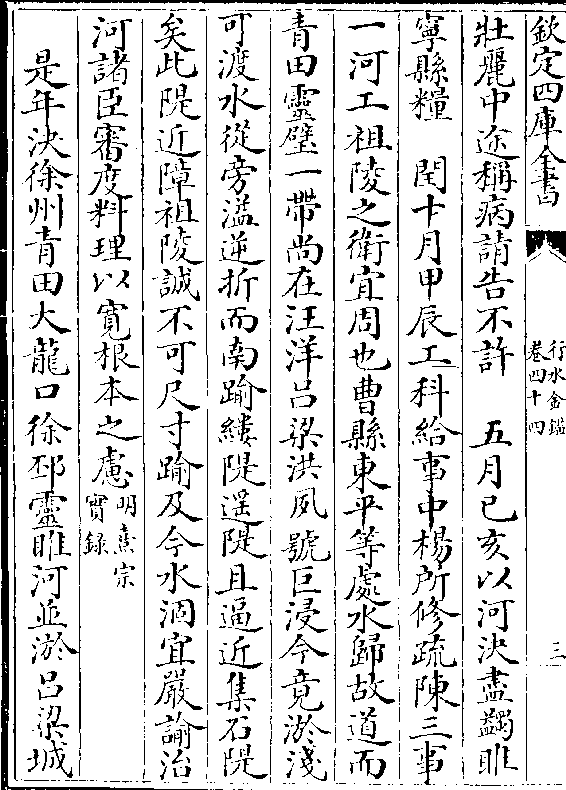 欽定四庫全書
行水金鑑
卷四十四
三
壯麗中途稱病請告不許　五月己亥以河決盡蠲睢
寧縣糧　閏十月甲辰工科給事中楊所修疏陳三事
一河工祖陵之衛宜周也曹縣東平等處水歸故道而
青田靈璧一帶尚在汪洋吕梁洪夙號巨浸今竟淤淺
可渡水從旁溢逆折而南踰縷隄遥隄且逼近集石隄
矣此隄近障祖陵誠不可尺寸踰及今水涸宜嚴諭治
河諸臣審度料理以寛根本之慮明熹宗
實錄
是年決徐州青田大龍口徐邳靈睢河並淤吕梁城